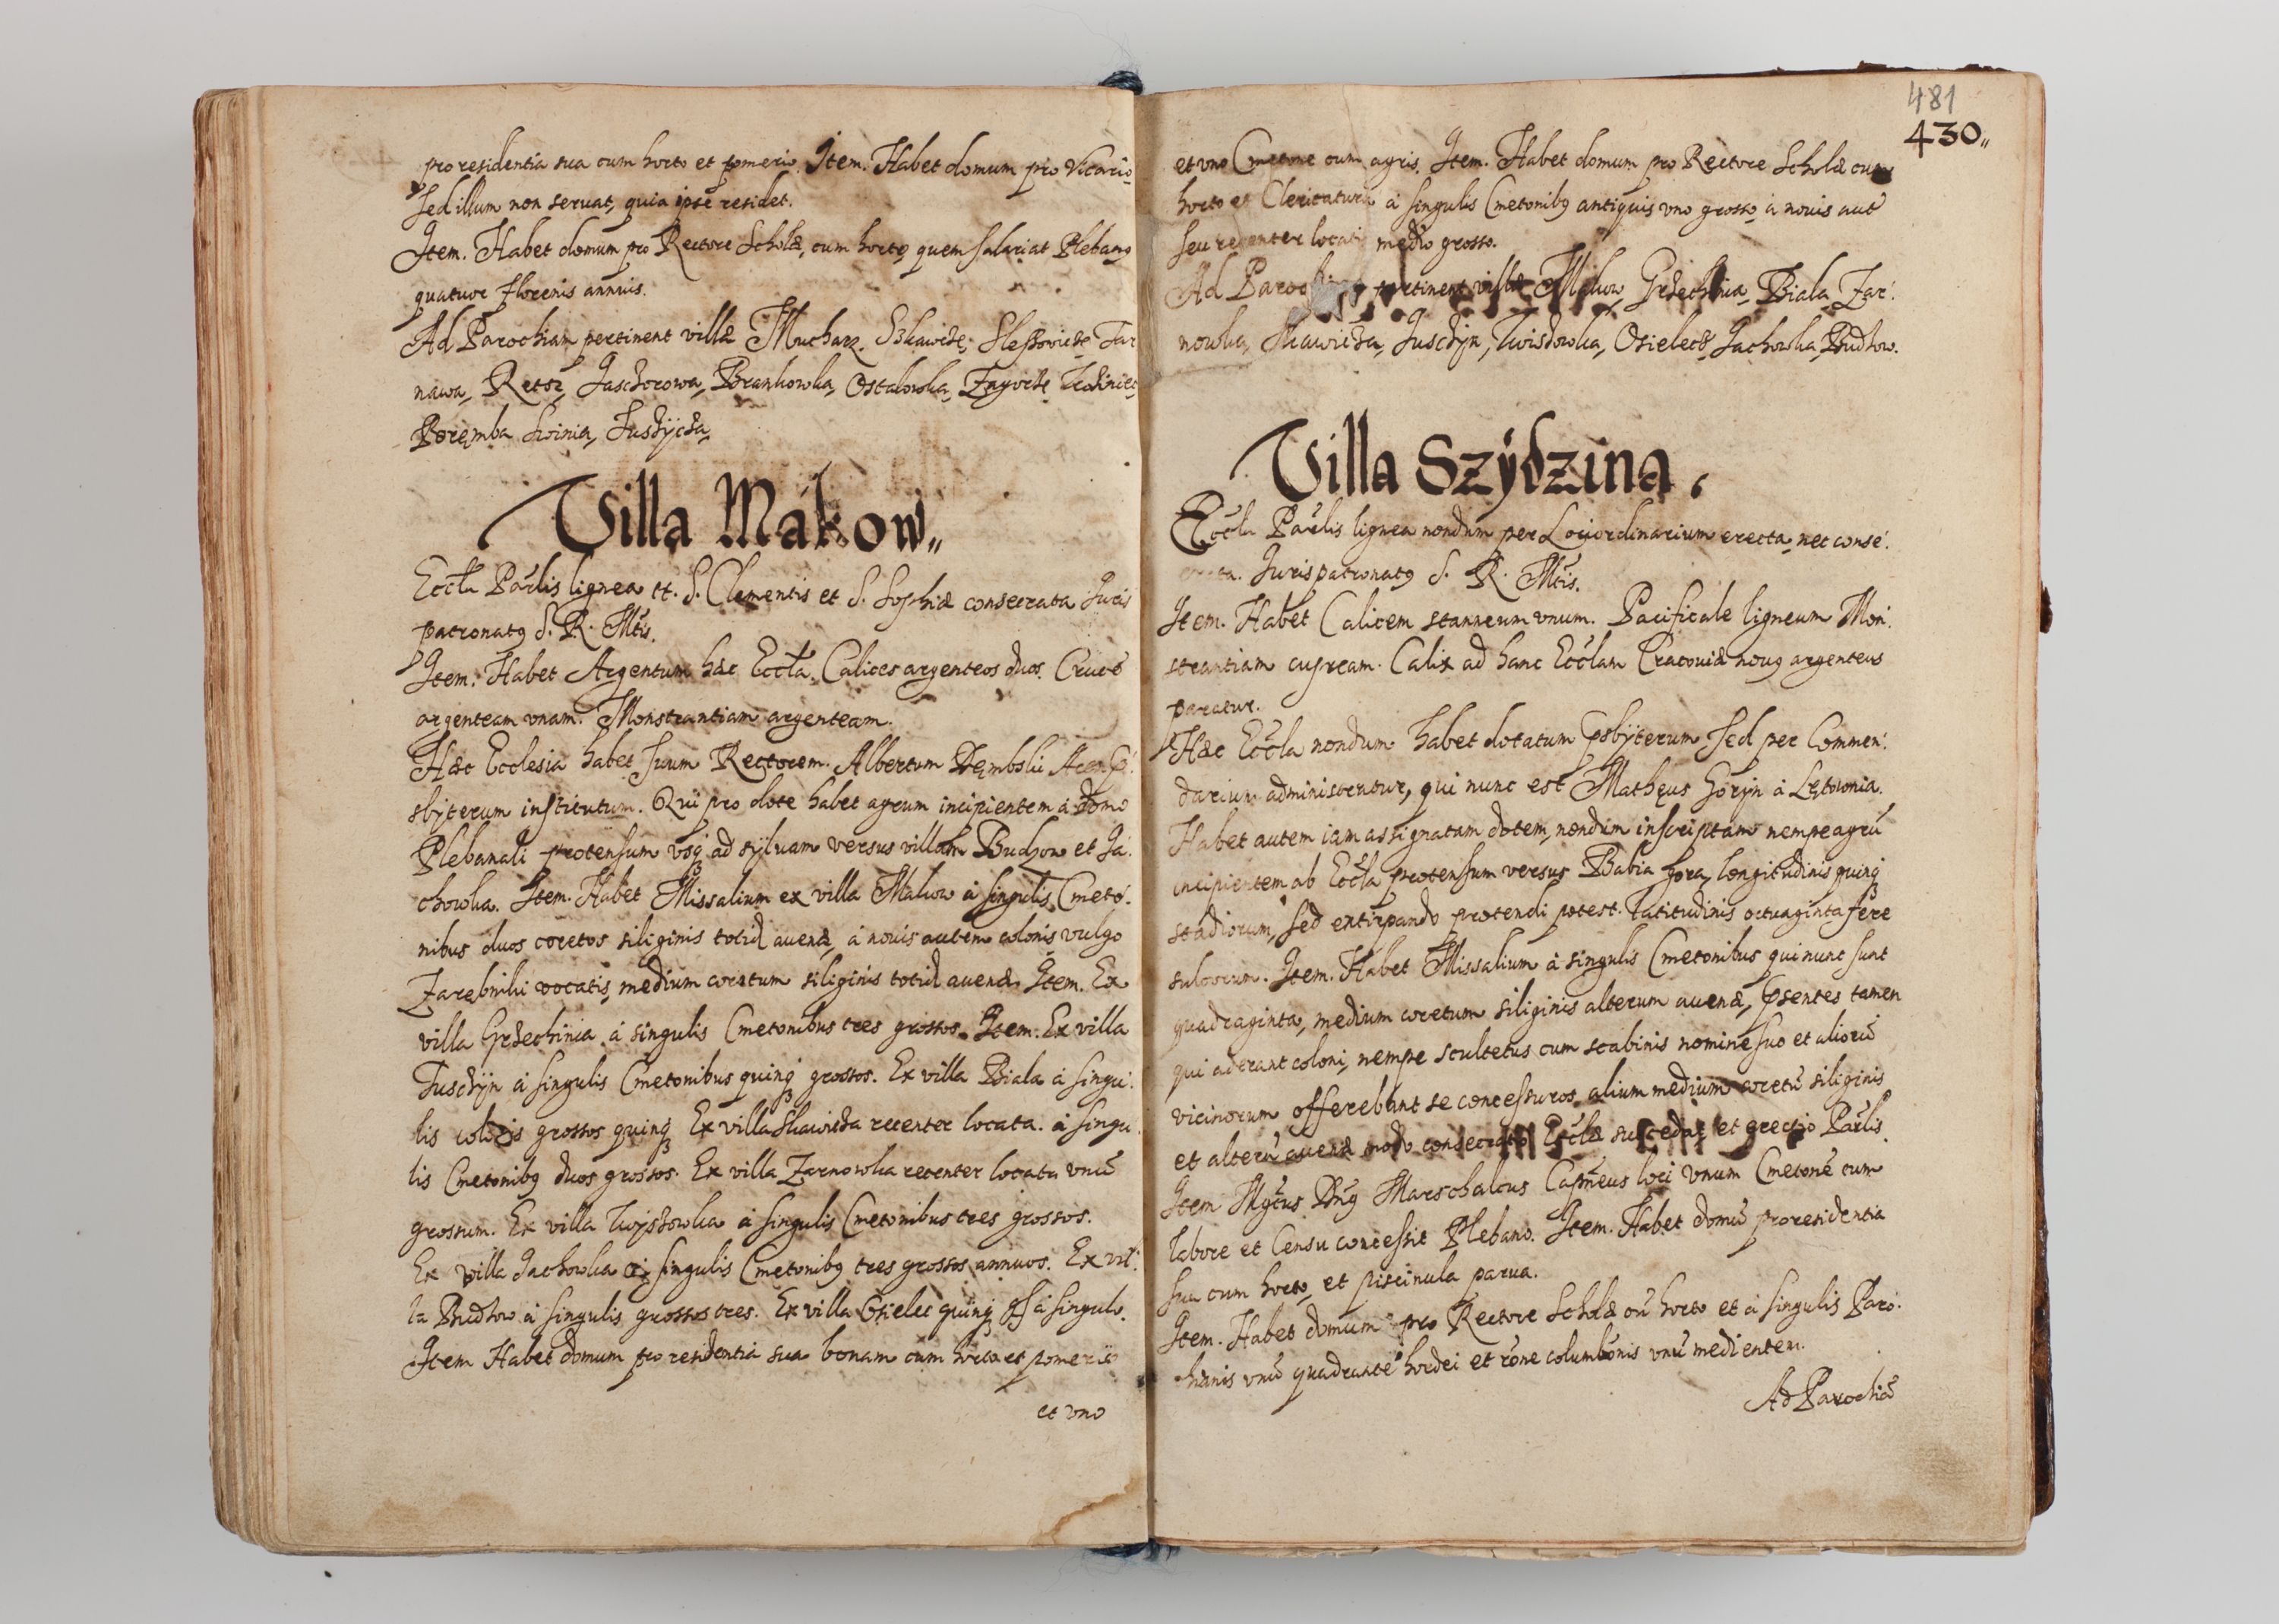 pro residentia sua cum horto et pomerio. Item. Habet domum pro Vicario
sed illum non seruat, quia ipse residet.
Item. Habet domum pro Rectore Scholæ, cum horto, quem salariat Plebano
quatuor florenis annuis.
Ad Parochiam pertinent villæ Mucharz, Szkawcze, Sleszowicze Tar
nawa, Retsz, Jaschorowa, Brankowka, Ostalowka, Zagorze
Poręmba Swinia, Juszÿcza,
Villa Makow„
Eccła Paŕlis lignea tt. S. Clementis et S. Sophiæ consecrata Juris
patronatꝰ S. R. Mtis.
Item. Habet Argentum hæc Eccła. Calices argenteos duos. Crucē
argenteam vnam. Monstrantiam argenteam.
Hæc Ecclesia habet suum Rectorem. Albertum Dembski
sbÿterum institutum. Qui pro dote habet agrum incipientem à domo
Plebanali protensum vsq̃ ad sÿluam versus villam Budzow et Ja:
chowka. Item. Habet Missalium ex villa Makow à singulis Cmeto:
nibus duos coretos siliginis totid auenæ, à nouis autem colonis vulgo
Zarębniki vocatis, medium coretum siliginis totid auenæ. Item. Ex
villa Grzechinia à singulis Cmetonibus tres grossos. Item. Ex villa
Juszczÿn à singulis Cmetonibus quinq̃ grossos. Ex villa Biala à singu:
lis colonis grossos quinq̃ Ex villa Skawicza recenter locata. à singu:
lis Cmetonibꝰ duos grossos. Ex villa Zarnowka recenter locata vnū
grossum. Ex villa Kwÿszowka à singulis Cmetonibus tres grossos.
Ex villa Jachowka à singulis Cmetonibꝰ tres grossos annuos. Ex vil:
la Budzow à singulis grossos tres. Ex villa Osielec quinq̃ à singulo.
Item Habet domum pro residentia sua bonam cum horto et pomerio
et vno
481
430„
et vno Cmetone cum agris. Item. Habet domum pro Rectore Scholæ cum
horto et Clericatura à singulis Cmetonibꝰ antiquis vno grosso, à nouis aut
seu recenter locatis medio grosso.
Ad Parochiam pertinent villæ Makow, Grzechinia, Biala, Zar:
nowka, Skawicza, Juszczÿn, Kwiszowka, Osielecz, Jachowka, Budzow.
Villa Szÿdzina.
Eccła Paŕlis lignea nondum per Loci ordinarium erecta, nec conse:
crata. Juris patronatꝰ S. R. Mtis.
Item. Habet Calicem stanneum vnum. Pacificale ligneum Mon:
strantiam cupream. Calix ad hanc Ecclam Cracouiæ nouꝰ argenteus
paratur.
Hæc Eccła nondum habet dotatum Psbÿterum sed per Commen:
darium administratur, qui nunc est Matheus Gorÿn à Lętownia.
Habet autem iam assignatam dotem, nondum inscriptam nempe agrū
incipientem ab Eccła protensum versus Babia Gora, longitudinis quinq̃
stadiorum, sed extirpando protendi potest. Latitudinis octuaginta fere
sulcorum. Item. Habet Missalium à singulis Cmetonibus qui nunc sunt
quadraginta, medium coretum siliginis alterum auenæ, Psentes tamen
qui aderant coloni, nempe scultetus cum scabinis nomine suo et aliorū
vicinorum offerebant se concessuros alium medium coretū siliginis
et alterū auenæ modo consecratio Eccłæ succedat et erectio Paŕlis.
Item Mgcus Dñꝰ Marschalcus Capneus loci vnum Cmetonē cum
labore et Censu concessit Plebano. Item. Habet domū pro residentia
sua cum horto, et piscinula parua.
Item. Habet domum pro Rectore Scholæ cū horto et à singulis Paro:
chianis vnū quadrantē hordei et rōne columbōnis vnū medientem.
Ad Parochiā